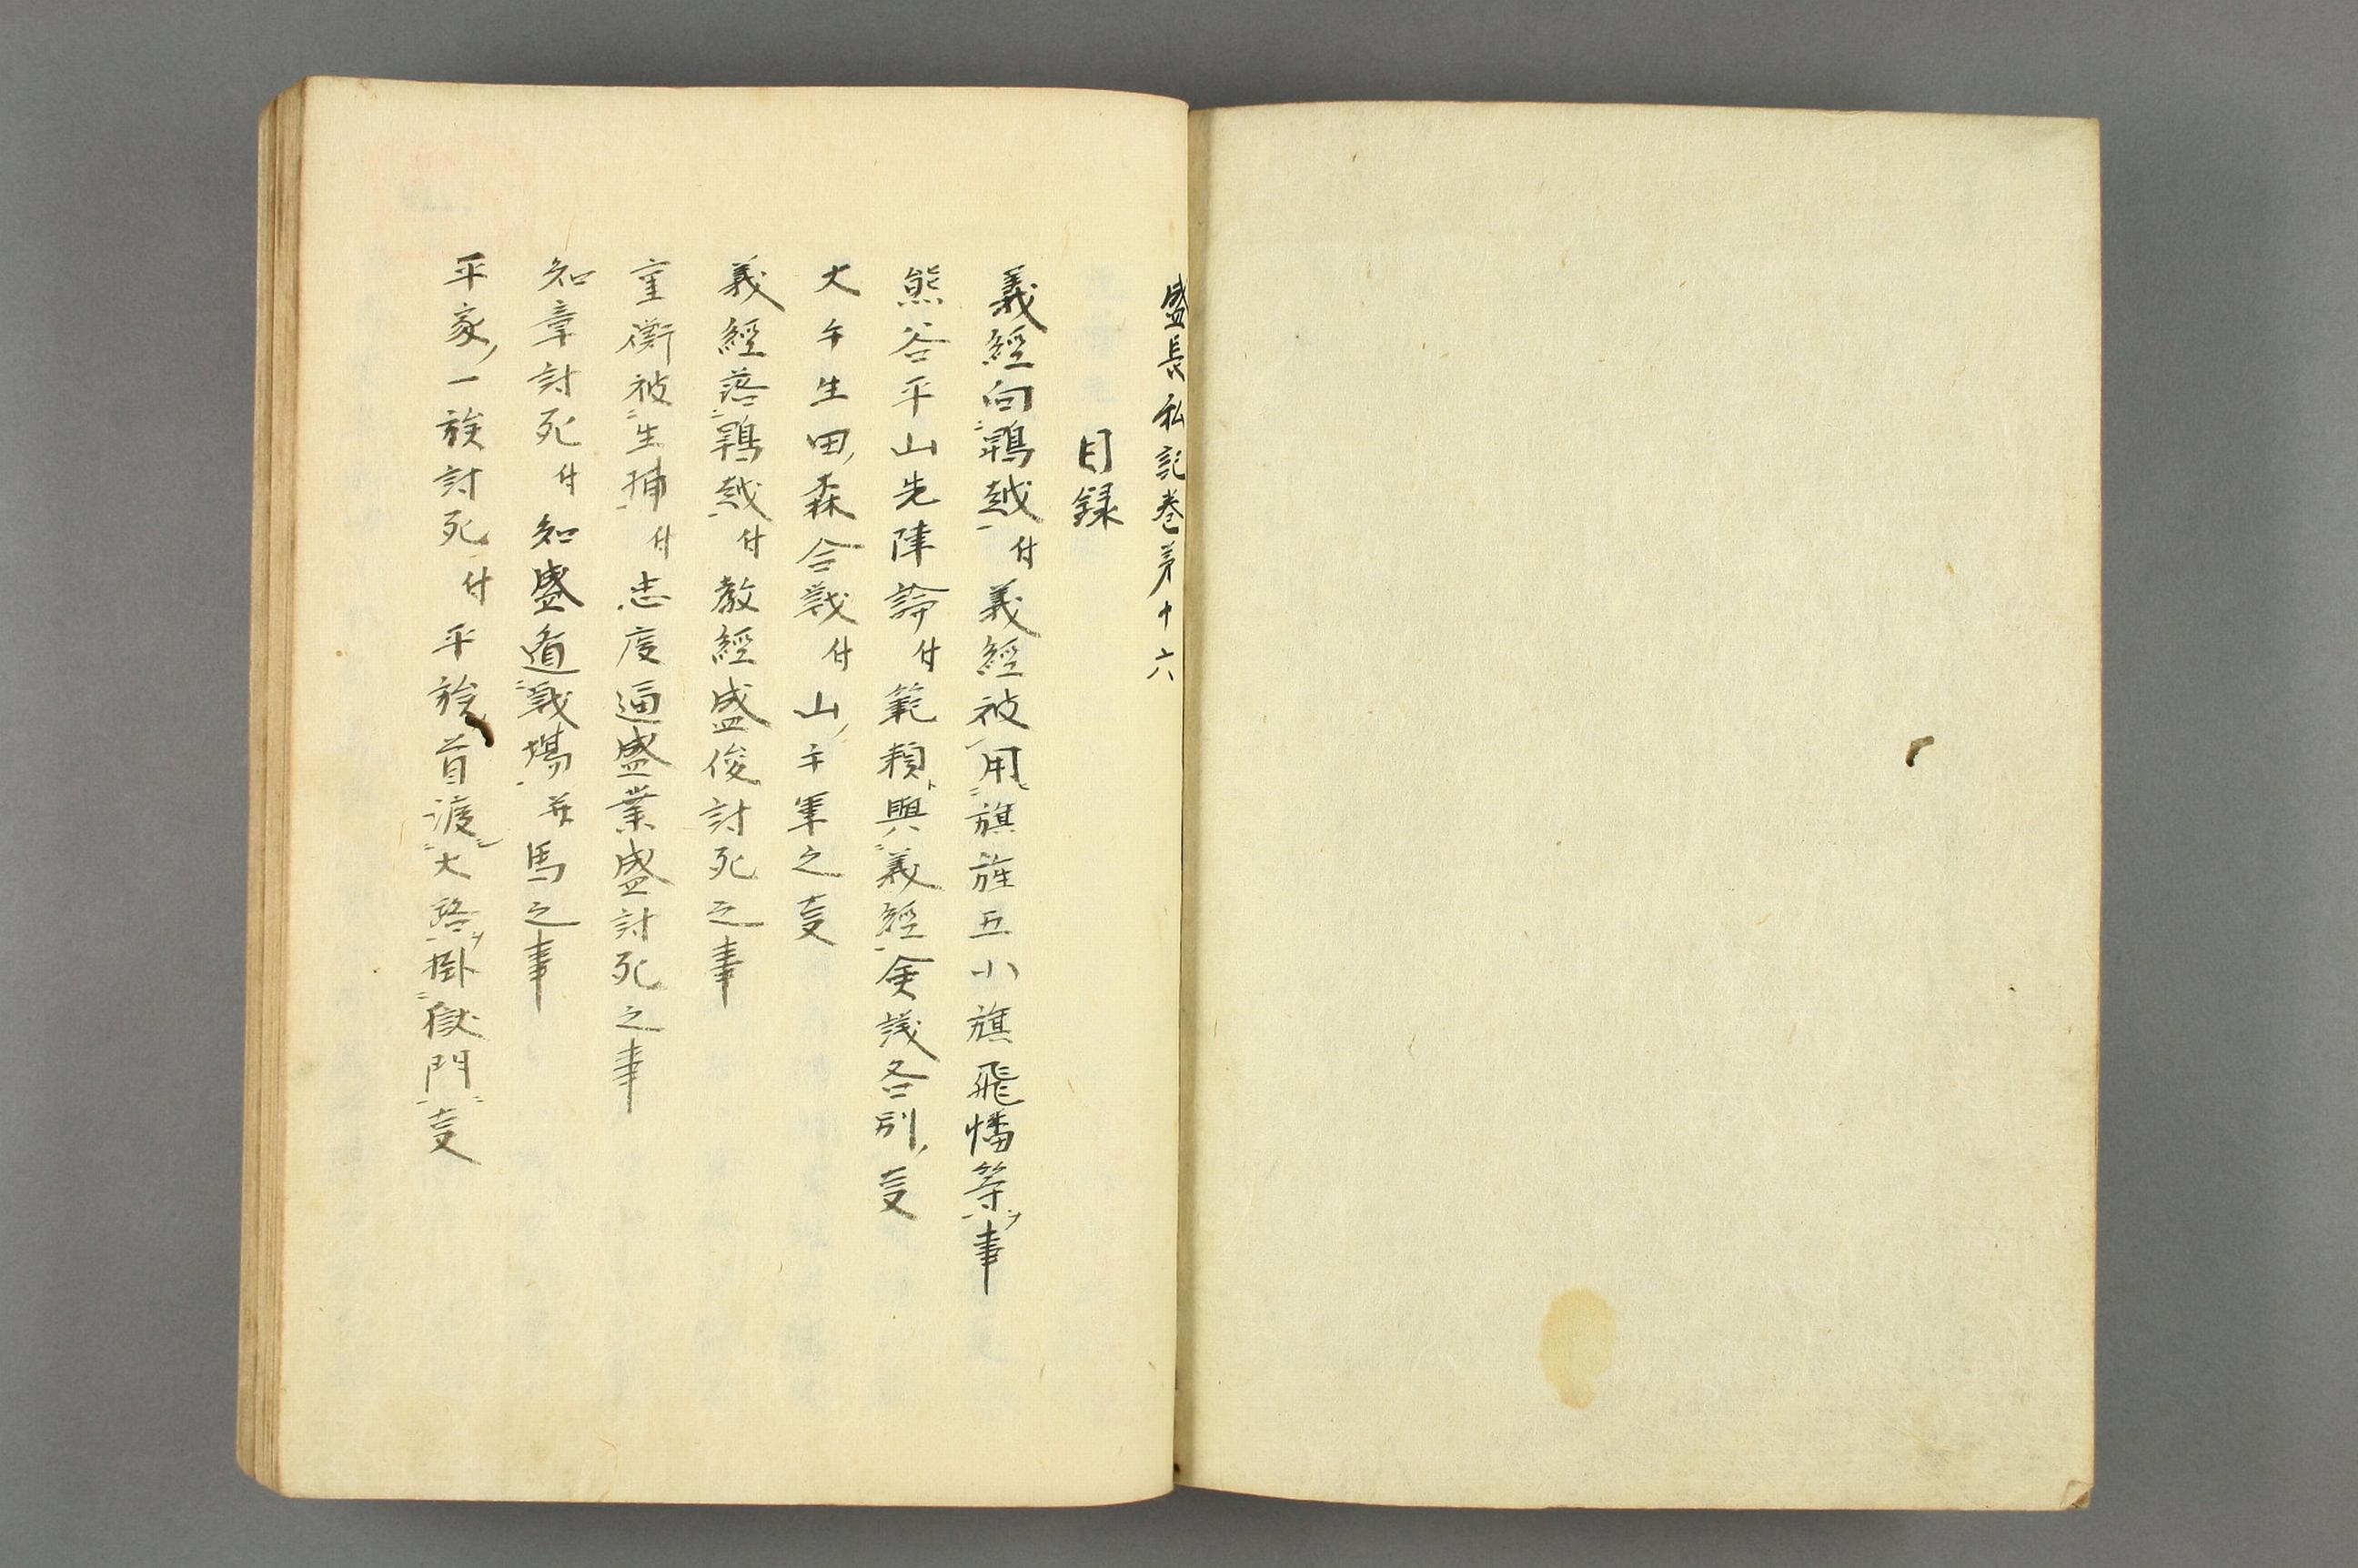 盛長私記巻第十六
目録
義經向鵯越付義經被用旗旌五小旗飛幡等事
熊谷平山先陣諍付範頼與義經金議各別叓
大手生田森合戦付山手軍之叓
義經落鵯越付教經盛俊討死之事
重衡被生捕付忠度通盛業盛討死之事
知章討死付知盛遁戦場并馬之事
平家一族討死付平族首渡大路掛獄門叓